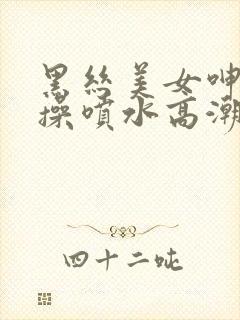 黑丝美女呻
操喷水高潮
四十二吨